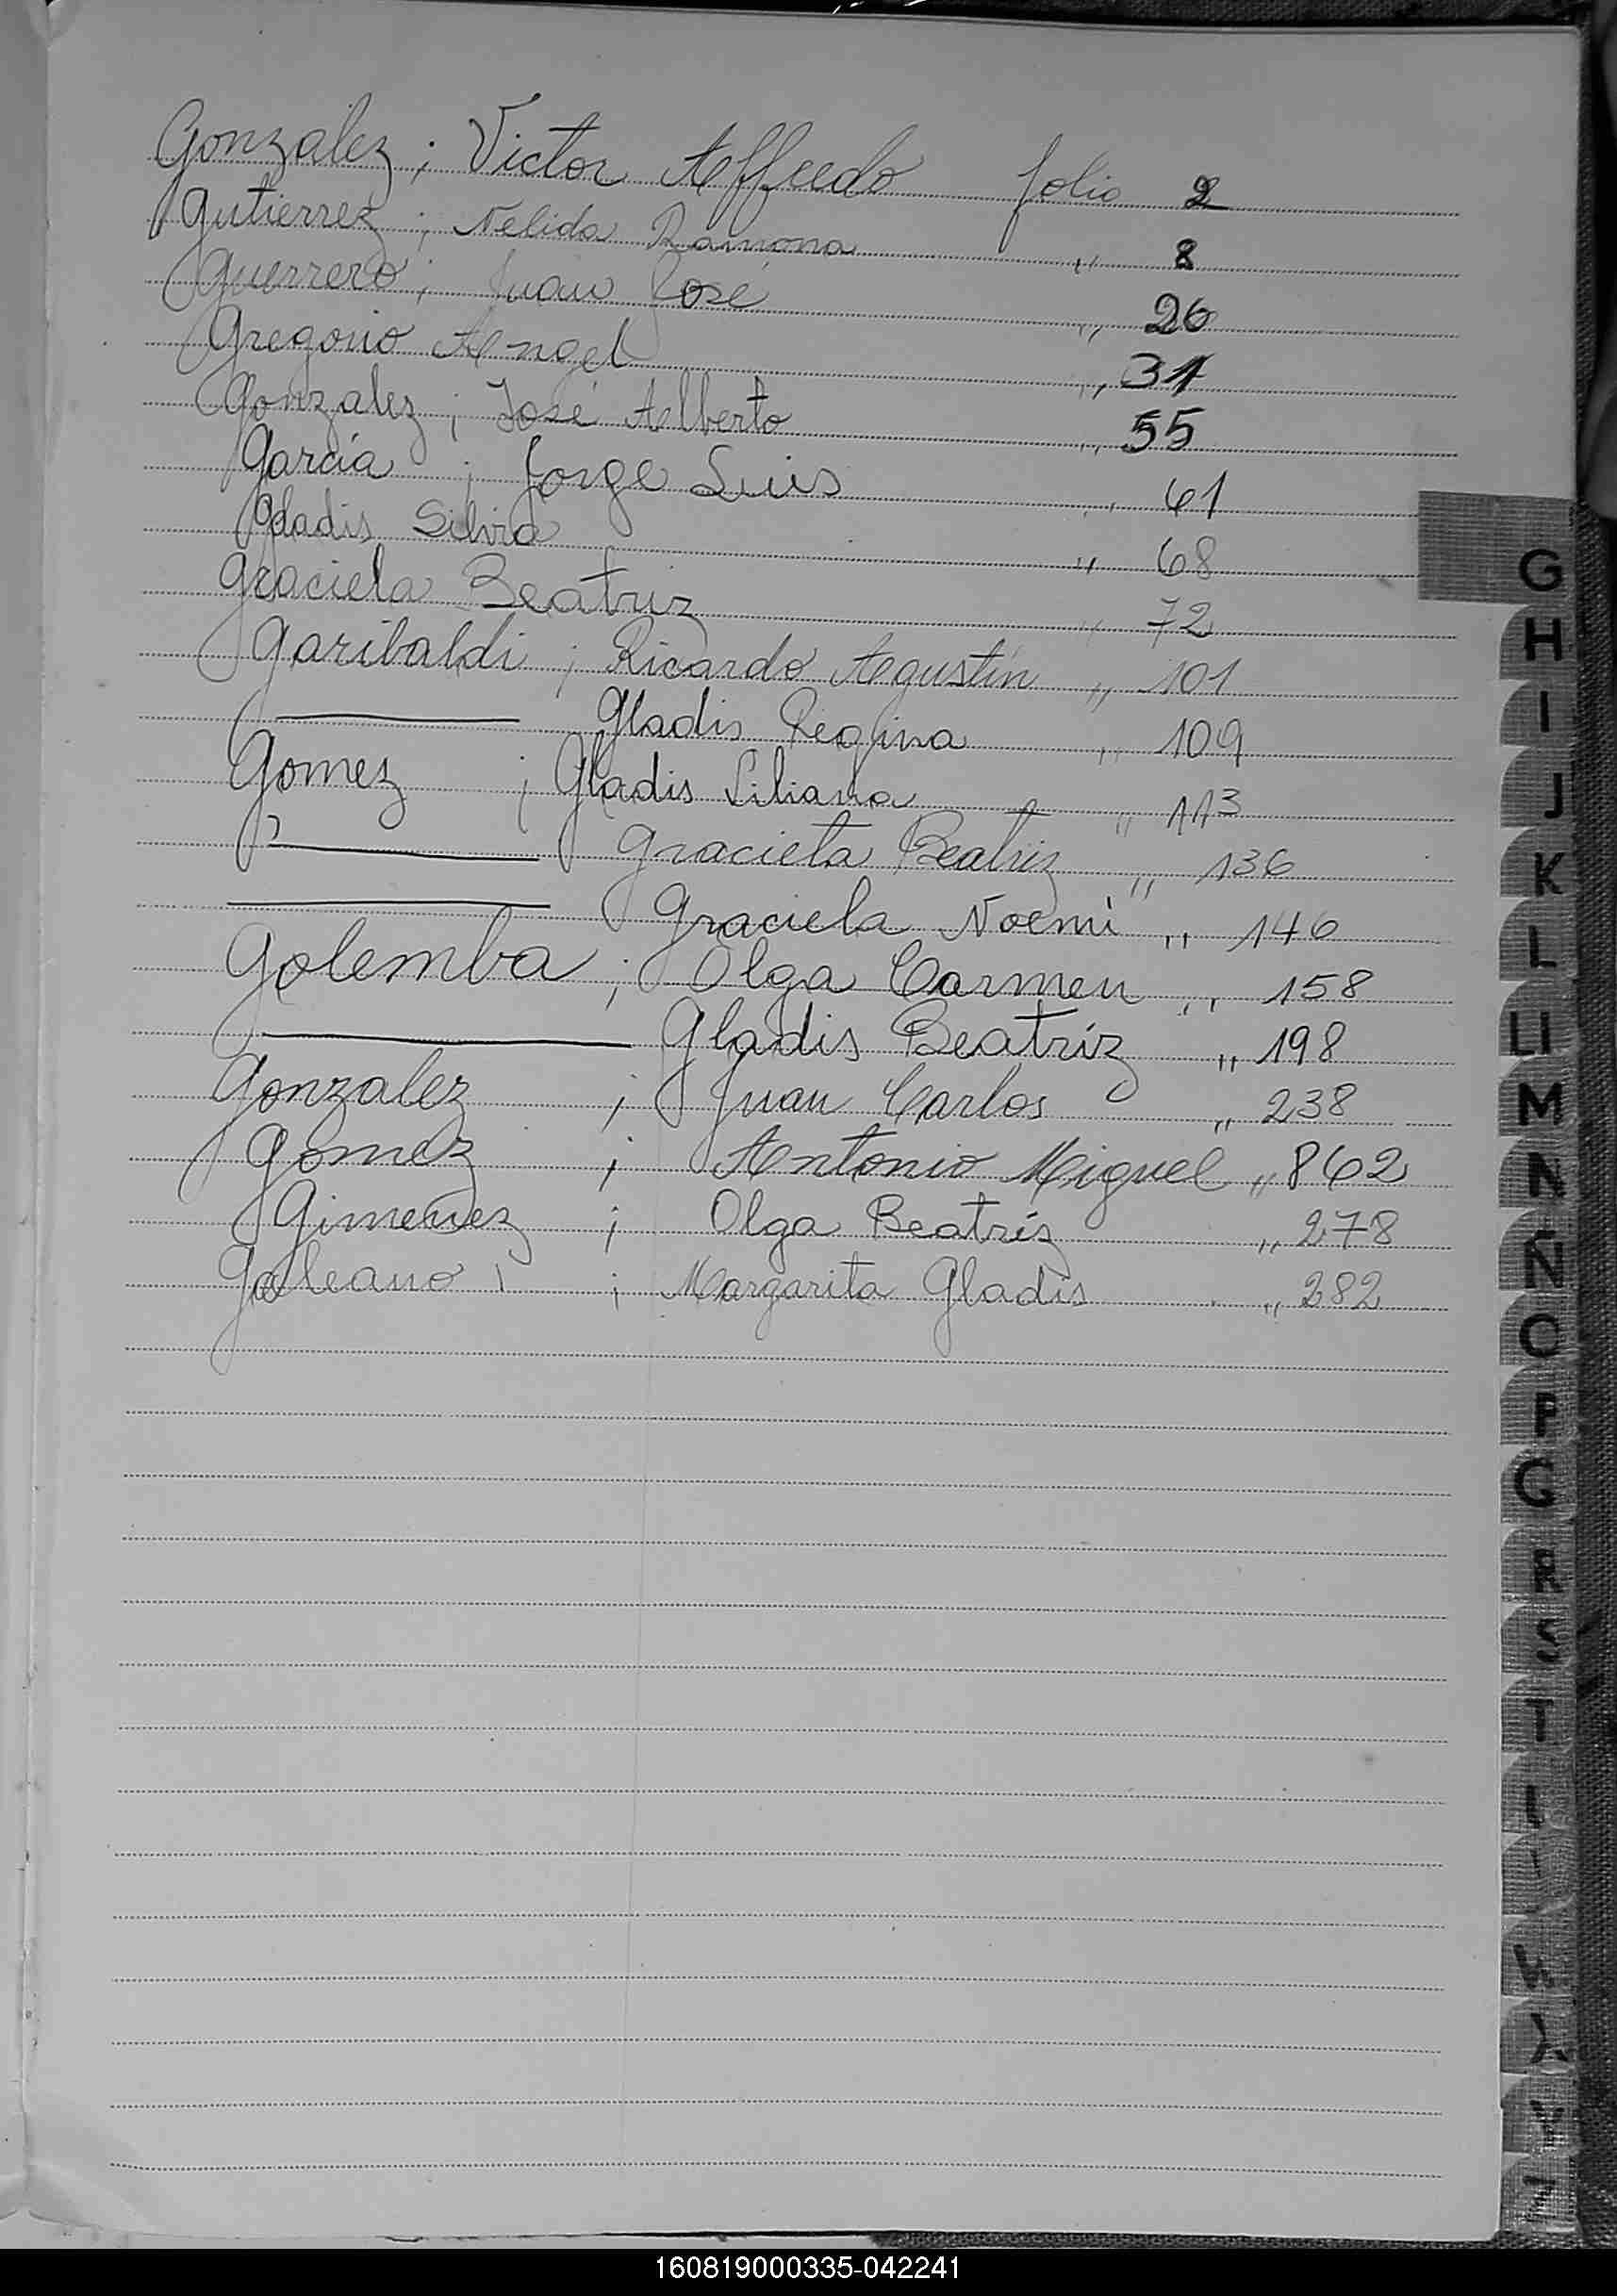 Gonzalez ; Victor Alfredo folio 2
Gutierrez ; Nelida Ramona ,, 8
Guerrero ; Juan José ,, 26
Gregorio Angel ,, 31
Gonzalez ; José Alberto ,, 55
García ; Jorge Luis ,, 61
Gladis Silvia ,, 68
Graciela Beatriz ,, 72
Garibaldi ; Ricardo Agustín ,, 101
——— Gladis Regina ,, 109
Gomez ; Gladis Liliana ,, 113
——— Graciela Beatriz ,, 136
——— Graciela Noemi ,, 146
Golemba ; Olga Carmen ,, 158
——— Gladis Beatríz ,, 198
Gonzalez ; Juan Carlos ,, 238
Gomez ; Antonio Miguel ,, 862
Gimenez ; Olga Beatríz ,, 278
Galeano ; Margarita Gladis ,, 282
G
H
I
J
K
L
LL
M
N
Ñ
O
P
R
S
160819000335-042241